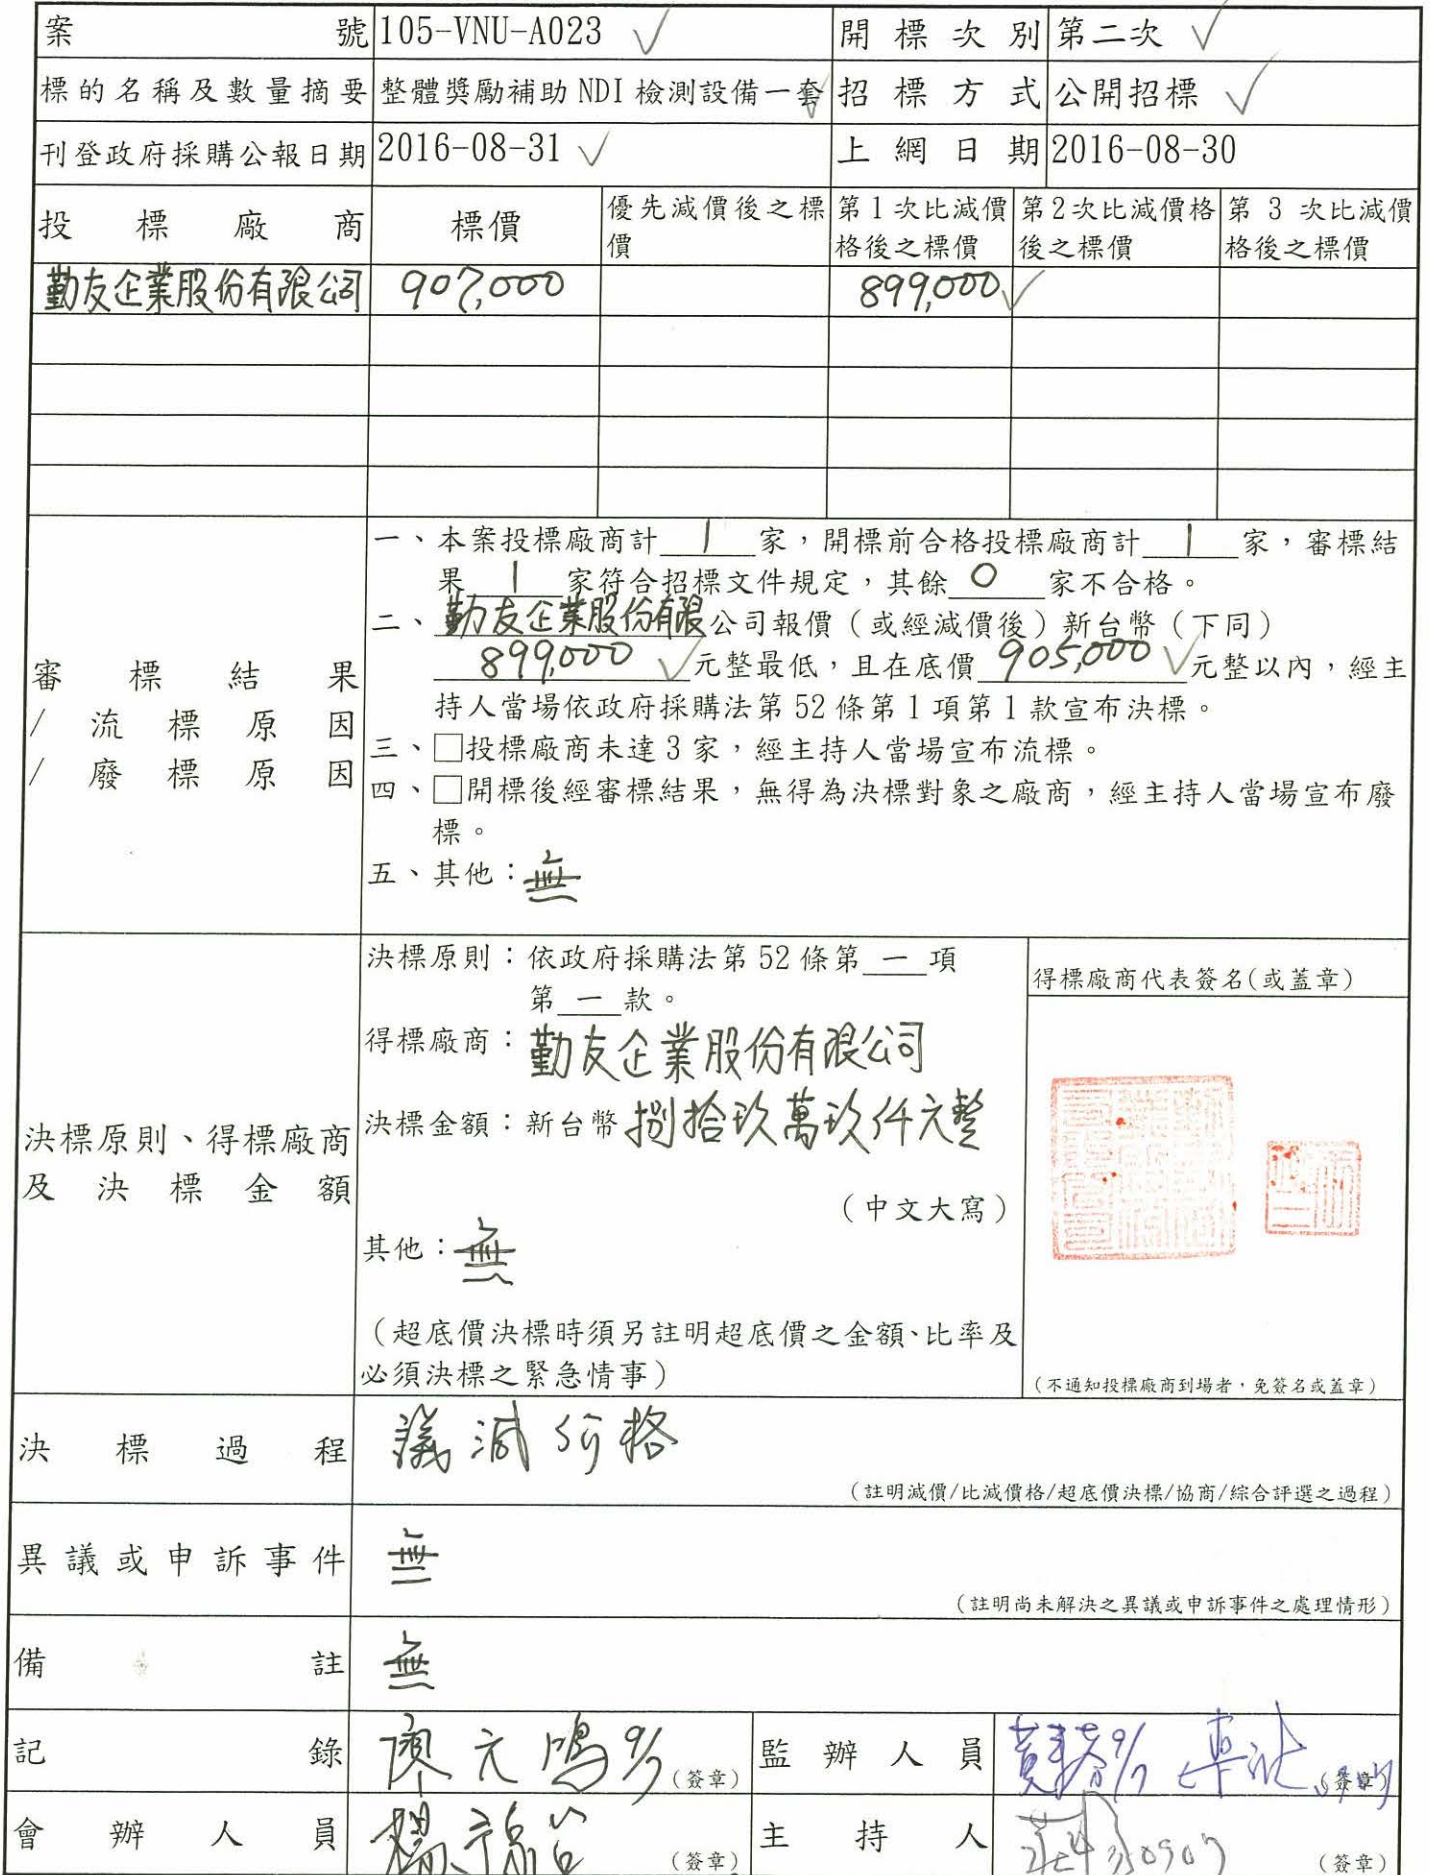 案號 105-VNU-A023 開標次別 第二次
標的名稱及數量摘要 整體獎勵補助 NDI 檢測設備一套 招標方式 公開招標
刊登政府採購公報日期 2016-08-31 上網日期 2016-08-30
投標廠商 標價 優先減價後之標價 第1次比減價格後之標價 第2次比減價格後之標價 第3次比減價格後之標價
勤友企業股份有限公司 907,000 899,000
審標結果
/流標原因
/廢標原因
一、本案投標廠商計 1 家，開標前合格投標廠商計 1 家，審標結
果 1 家符合招標文件規定，其餘 0 家不合格。
二、勤友企業股份有限公司報價（或經減價後）新台幣（下同）
899,000 元整最低，且在底價 905,000 元整以內，經主
持人當場依政府採購法第 52 條第 1 項第 1 款宣布決標。
三、□投標廠商未達 3 家，經主持人當場宣布流標。
四、□開標後經審標結果，無得為決標對象之廠商，經主持人當場宣布廢
標。
五、其他：無
決標原則、得標廠商
及決標金額
決標原則：依政府採購法第 52 條第 一 項
第 一 款。
得標廠商：勤友企業股份有限公司
決標金額：新台幣 捌拾玖萬玖仟元整
（中文大寫）
其他：無
（超底價決標時須另註明超底價之金額、比率及
必須決標之緊急情事）
得標廠商代表簽名(或蓋章)
（不通知投標廠商到場者，免簽名或蓋章）
決標過程 議減价格
（註明減價/比減價格/超底價決標/協商/綜合評選之過程）
異議或申訴事件 無
（註明尚未解決之異議或申訴事件之處理情形）
備註 無
記錄 廖元鳴 9/7 （簽章） 監辦人員 9/7 （簽章）
會辦人員 （簽章） 主持人 0907 （簽章）